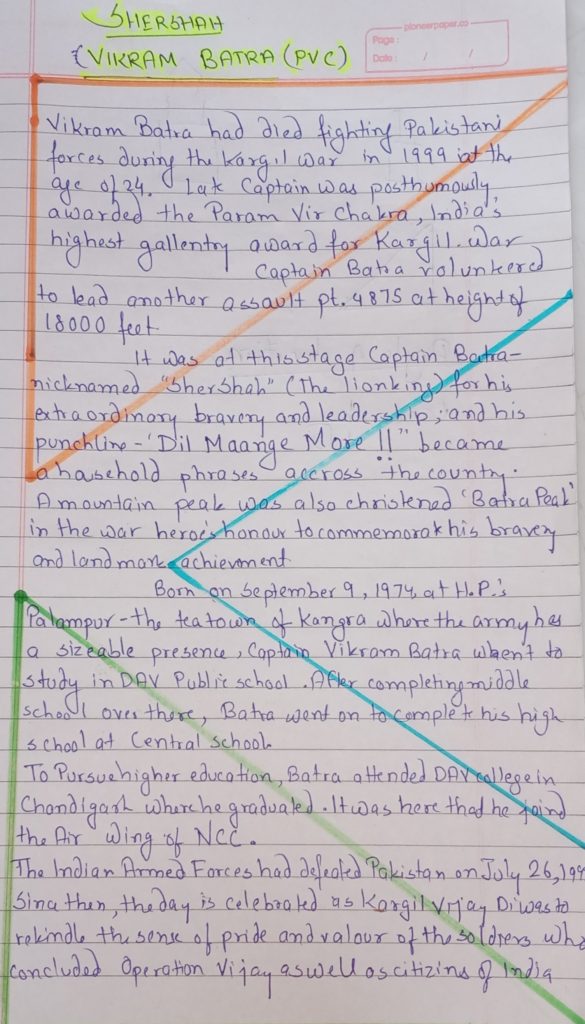 SHERSHAH
(VIKRAM BATRA (PVC)
pioneerpaper.co
Page :
Date : / /
Vikram Batra had died fighting Pakistani
forces during the Kargil war in 1999 at the
age of 24. Late Captain was posthumously
awarded the Param Vir Chakra, India's
highest gallentry award for Kargil. War
Captain Batra volunteered
to lead another assault pt. 4875 at height of
18000 feet
It was at this stage Captain Batra-
nicknamed "SherShah" (The lionking) for his
extraordinary bravery and leadership, and his
punchline - 'Dil Maange More !!" became
a household phrases accross the country.
A mountain peak was also christened 'Batra Peak'
in the war heroe's honour to commemorate his bravery
and landmark achievment
Born on September 9, 1974, at H.P.'s
Palampur - the tea town of Kangra where the army has
a sizeable presence, Captain Vikram Batra when't to
study in DAV Public school. After completing middle
school over there, Batra went on to complete his high
school at Central school.
To Pursue higher education, Batra attended DAV college in
Chandigarh where he graduated. It was here that he joind
the Air Wing of NCC.
The Indian Armed Forces had defeated Pakistan on July 26, 199
Since then, the day is celebrated as Kargil Vijay Diwas to
rekindle the sense of pride and valour of the soldiers who
concluded Operation Vijay aswell as citizins of India